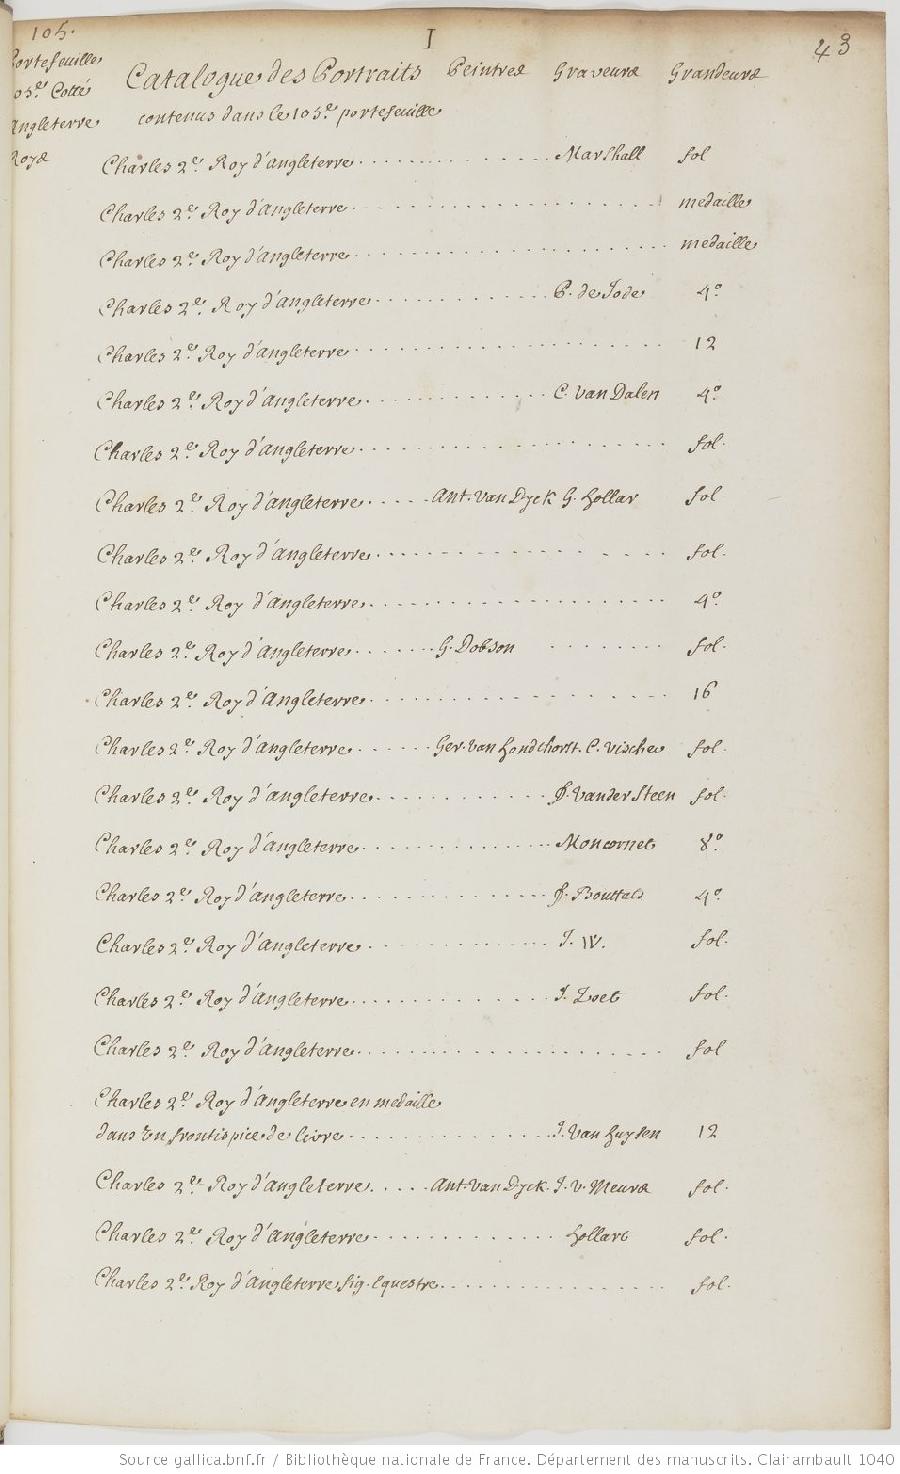 105.
I
43
portefeuille
105e. Cotté
Angleterre
Roys
Catalogue des Portraits Peintres Graveurs Grandeurs
contenus dans le 105e. portefeuille
Charles 2e. Roy d'angleterre . . . . . . Marshall fol
Charles 2e. Roy d'angleterre . . . . . . medaille
Charles 2e. Roy d'angleterre . . . . . . medaille
Charles 2e. Roy d'angleterre . . . . . . P. de Jode 4°
Charles 2e. Roy d'angleterre . . . . . . 12
Charles 2e. Roy d'angleterre . . . . . . C. van Dalen 4°.
Charles 2e. Roy d'angleterre . . . . . . fol.
Charles 2e. Roy d'angleterre . . . . . Ant. van Dyck G. hollar fol
Charles 2e. Roy d'angleterre . . . . . . fol.
Charles 2e. Roy d'angleterre . . . . . . 4°.
Charles 2e. Roy d'angleterre . . . . . . G. Dobson . . . . . . fol.
Charles 2e. Roy d'angleterre . . . . . . 16
Charles 2e. Roy d'angleterre . . . . . . Ger. van hondthorst. C. vischer fol.
Charles 2e. Roy d'angleterre . . . . . . f. vander Steen fol.
Charles 2e. Roy d'angleterre . . . . . . Moncornet 8°.
Charles 2e. Roy d'angleterre . . . . . . f. Bouttats 4°.
Charles 2e. Roy d'angleterre . . . . . . J. W. fol.
Charles 2e. Roy d'angleterre . . . . . . J. Zoet fol.
Charles 2e. Roy d'angleterre . . . . . . fol
Charles 2e. Roy d'angleterre en medaille
dans un frontispice de livre . . . . . . J. van huysen 12
Charles 2e. Roy d'angleterre . . . . . Ant. van Dyck. J. v. Meurs fol.
Charles 2e. Roy d'angleterre . . . . . . hollart fol.
Charles 2e. Roy d'angleterre fig. equestre . . . . . . fol.
Source gallica.bnf.fr / Bibliothèque nationale de France. Département des manuscrits. Clairambault 1040